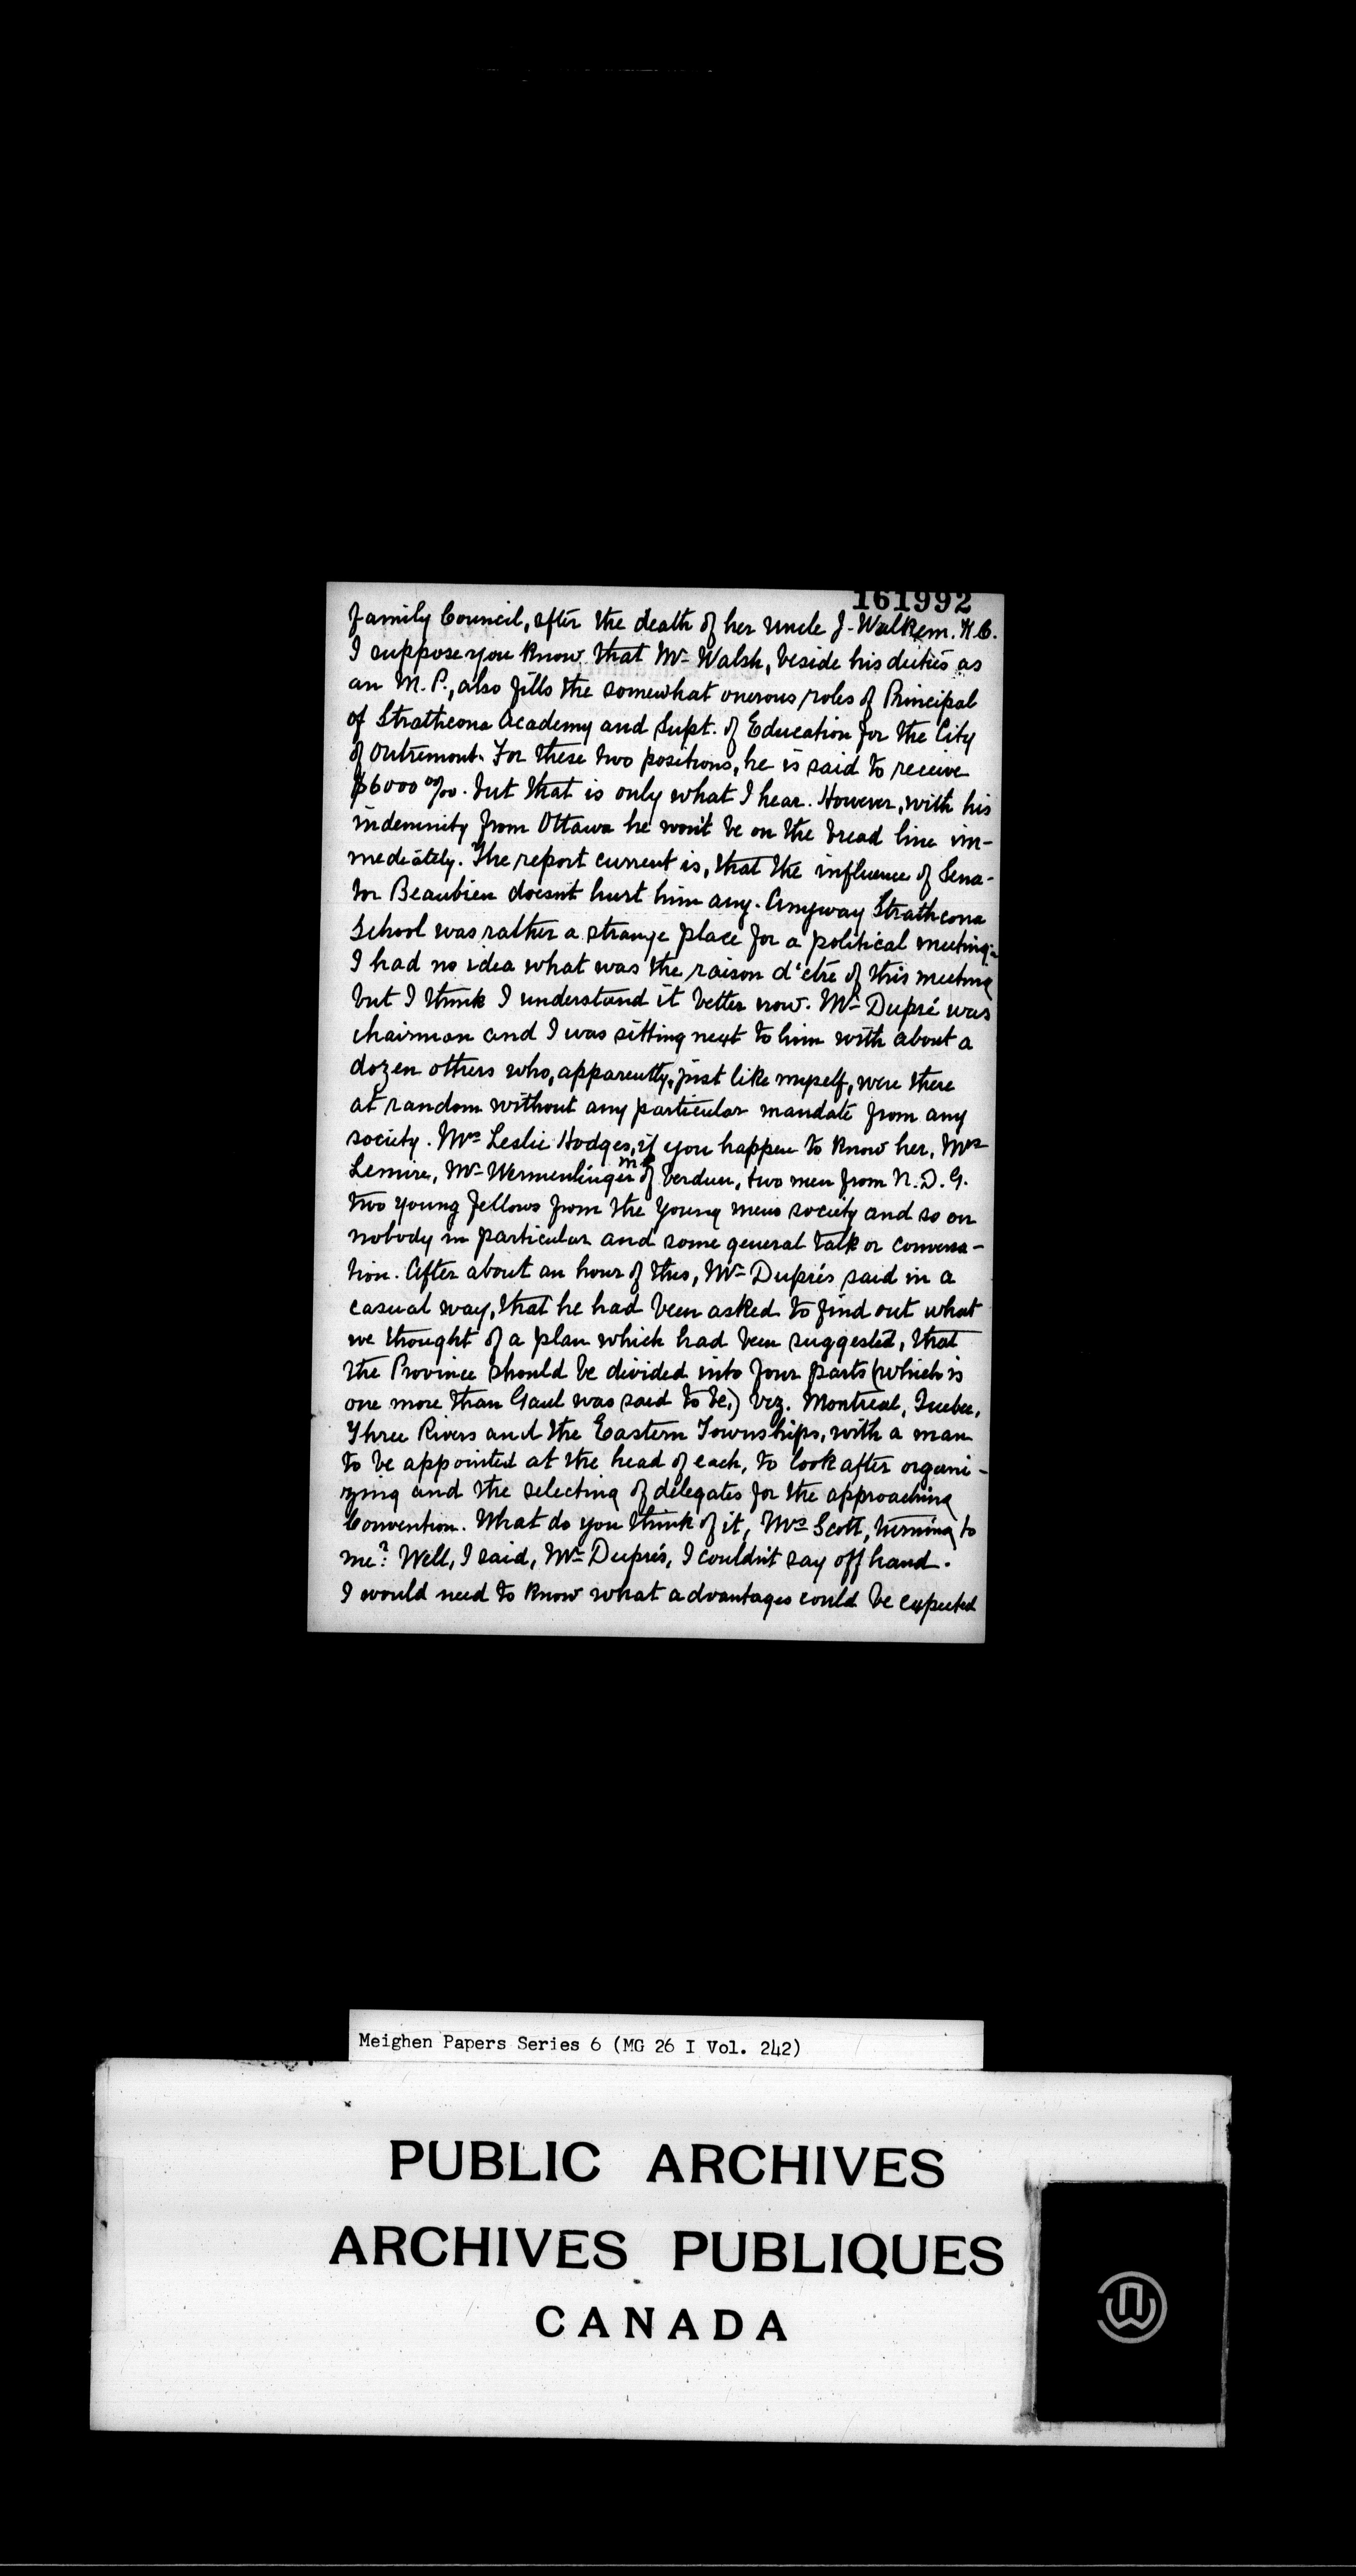 161992
family Council, after the death of her uncle J. Walkem. K.C.
I suppose you know that Mr Walsh, beside his duties as
an M.P., also fills the somewhat onerous roles of Principal
of Strathcona Academy and Supt. of Education for the City
of Outremont. For these two positions, he is said to receive
$6000 00/00. but that is only what I hear. However, with his
indemnity from Ottawa he won't be on the bread line im-
mediately. The report current is, that the influence of Sena-
tor Beaubien doesn't hurt him any. Anyway Strathcona
School was rather a strange place for a political meeting.
I had no idea what was the raison d'etre of this meeting
but I think I understand it better now. Mr Dupré was
chairman and I was sitting next to him with about a
dozen others who, apparently, just like myself, were there
at random without any particular mandate from any
society. Mrs Leslie Hodges, if you happen to know her, Mrs
Lemire, Mr Wermenlinger of Verdun, two men from N.D.G.
two young fellows from the young mens society and so on
nobody in particular and some general talk or conversa-
tion. After about an hour of this, MrDuprés said in a
casual way, that he had been asked to find out what
we thought of a plan which had been suggested, that
the Province should be divided into four parts (which is
one more than Gaul was said to be,) viz. Montreal, Quebec,
Three Rivers and the Eastern Townships, with a man
to be appointed at the head of each, to look after organi-
zing and the selecting of delegates for the approaching
Convention. What do you think of it, Mrs Scott, turning to
me? Well, I said, Mr Duprés, I couldn't say off hand.
I would need to know what advantages could be expected
Meighen Papers Series 6 (MG 26 I Vol. 242)
PUBLIC ARCHIVES
ARCHIVES PUBLIQUES
CANADA